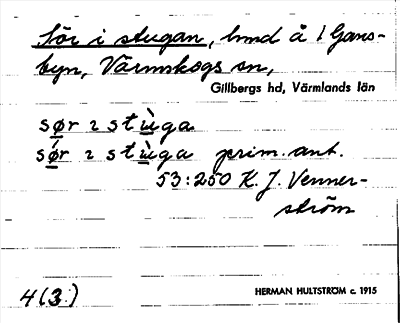 Sör i stugan, lmd å 1 Gans-
byn, Värmskogs sn,
Gillbergs hd, Värmlands län
sør ı stùga
sør ı stùga prim. ant.
53:250 K. J. Venner-
ström
4(3.)
HERMAN HULTSTRÖM c. 1915